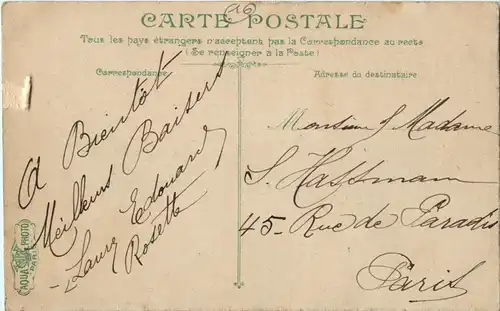 CARTE POSTALE
Tous les pays étrangers n'acceptent pas la Correspondance au recto
(Se renseigner à la Poste)
Correspondance
Adresse du destinataire
A Bientôt
Meilleurs Baisers
Laure Edouard
Rosette
Monsieur & Madame
S. Hassmann
45 - Rue de Paradis
Paris
AQUA PHOTO
PARIS